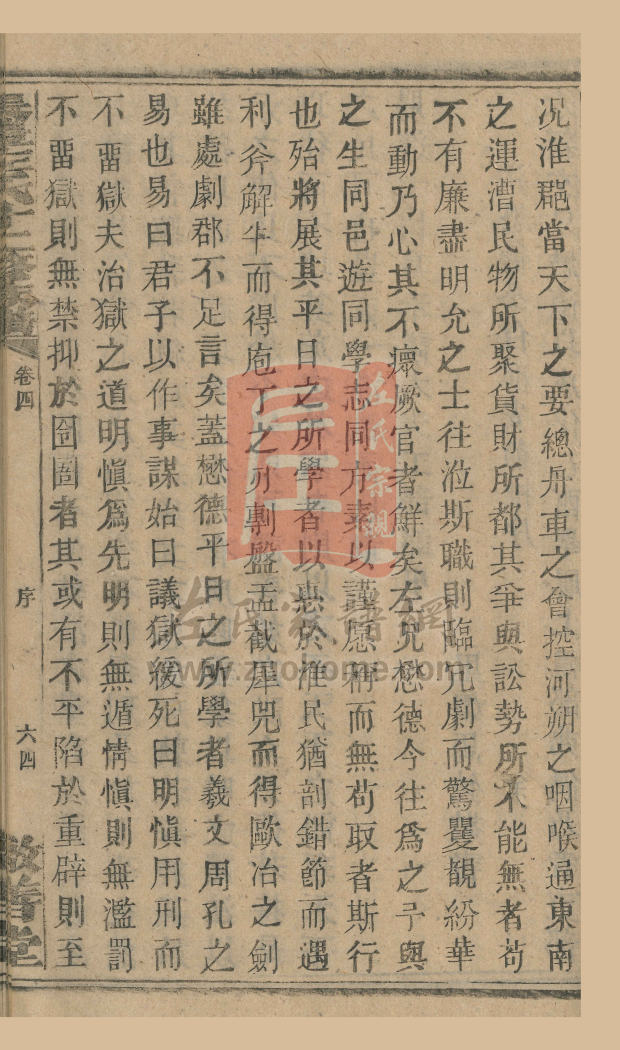 况淮郡當天下之要總舟車之會控河朔之咽喉通東南
之運漕民物所聚貨財所都其爭與訟勢所不能無者苟
不有廉盡明允之士往涖斯職則臨冗劇而驚瞿覩紛華
而動乃心其不瘝厥官者鮮矣左兄懋德今往爲之予與
之生同邑遊同學志同方素以謹愿稱而無苟取者斯行
也殆將展其平日之所學者以惠於淮民猶剖錯節而遇
利斧解牛而得庖丁之刃剸盤盂截犀兕而得歐冶之劍
雖處劇郡不足言矣蓋懋德平日之所學者羲文周孔之
易也易曰君子以作事謀始曰議獄緩死曰明愼用刑而
不畱獄夫治獄之道明愼爲先明則無遁情愼則無濫罰
不畱獄則無禁抑於囹圄者其或有不平陷於重辟則至
卷四
序
六四
敬善堂
左氏宗親
左氏家譜網
www.zuohome.com